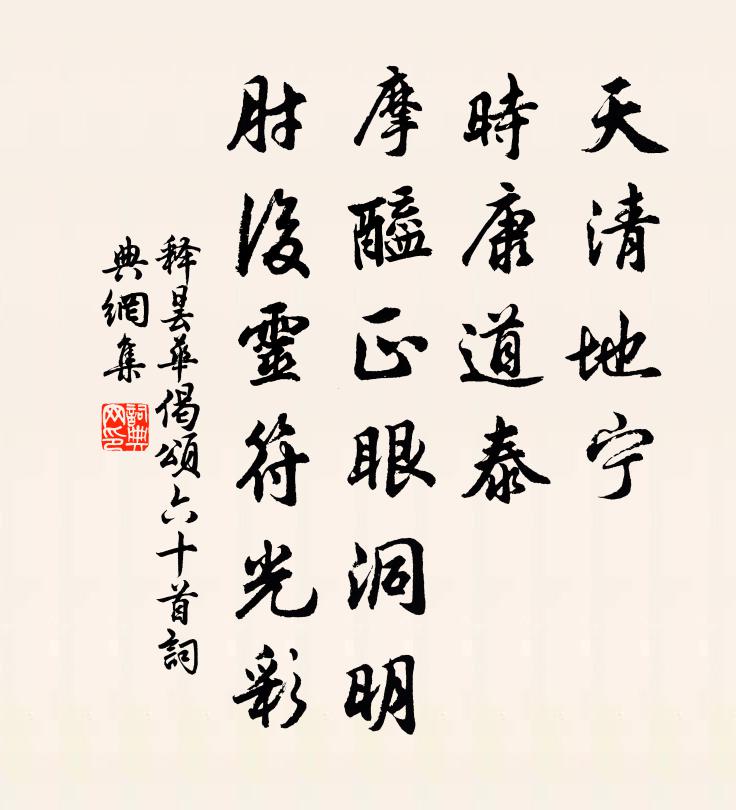 天清地宁
時康道泰
摩醯正眼洞明
肘後靈符光彩
释曇華偈頌六十首詞
典網集
詞典
网印